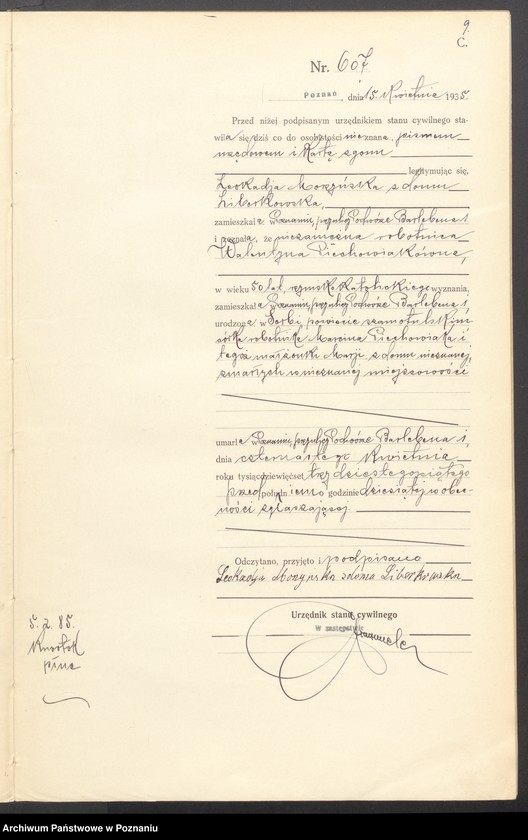 9.
C.
Nr. 607.
Poznań, dnia 15. Kwietnia 1935.
Przed niżej podpisanym urzędnikiem stanu cywilnego sta-
wiła się dziś co do osobistości nieznana, pismem
urzędowem i Kartą zgonu
legitymując się,
Leokadja Mozyńska z domu
Liberkowska,
zamieszkała w Poznaniu, przy ulicy Barlebena 1
i zeznała, że niezamężna robotnica
Walentyna Piechowiakówna,
w wieku 50 lat, rzymsko Katolickiego wyznania,
zamieszkała w Poznaniu, przy ulicy Barlebena 1,
urodzona w powiecie szamotulskim
córka robotnika Marcina Piechowiaka i
tegoż małżonki Marji z domu nieznanej,
zmarłych w nieznanej miejscowości
umarła w Poznaniu, przy ulicy Barlebena 1,
dnia czternastego Kwietnia
roku tysiąc dziewięćset trzydziestego piątego
przed południem o godzinie dziesiątej w obec-
ności zgłaszającej
Odczytano, przyjęto i podpisano
Leokadja Mozyńska z doma Liberkowska
Urzędnik stanu cywilnego
w zastępstwie
5. 2. 85.
Archiwum Państwowe w Poznaniu